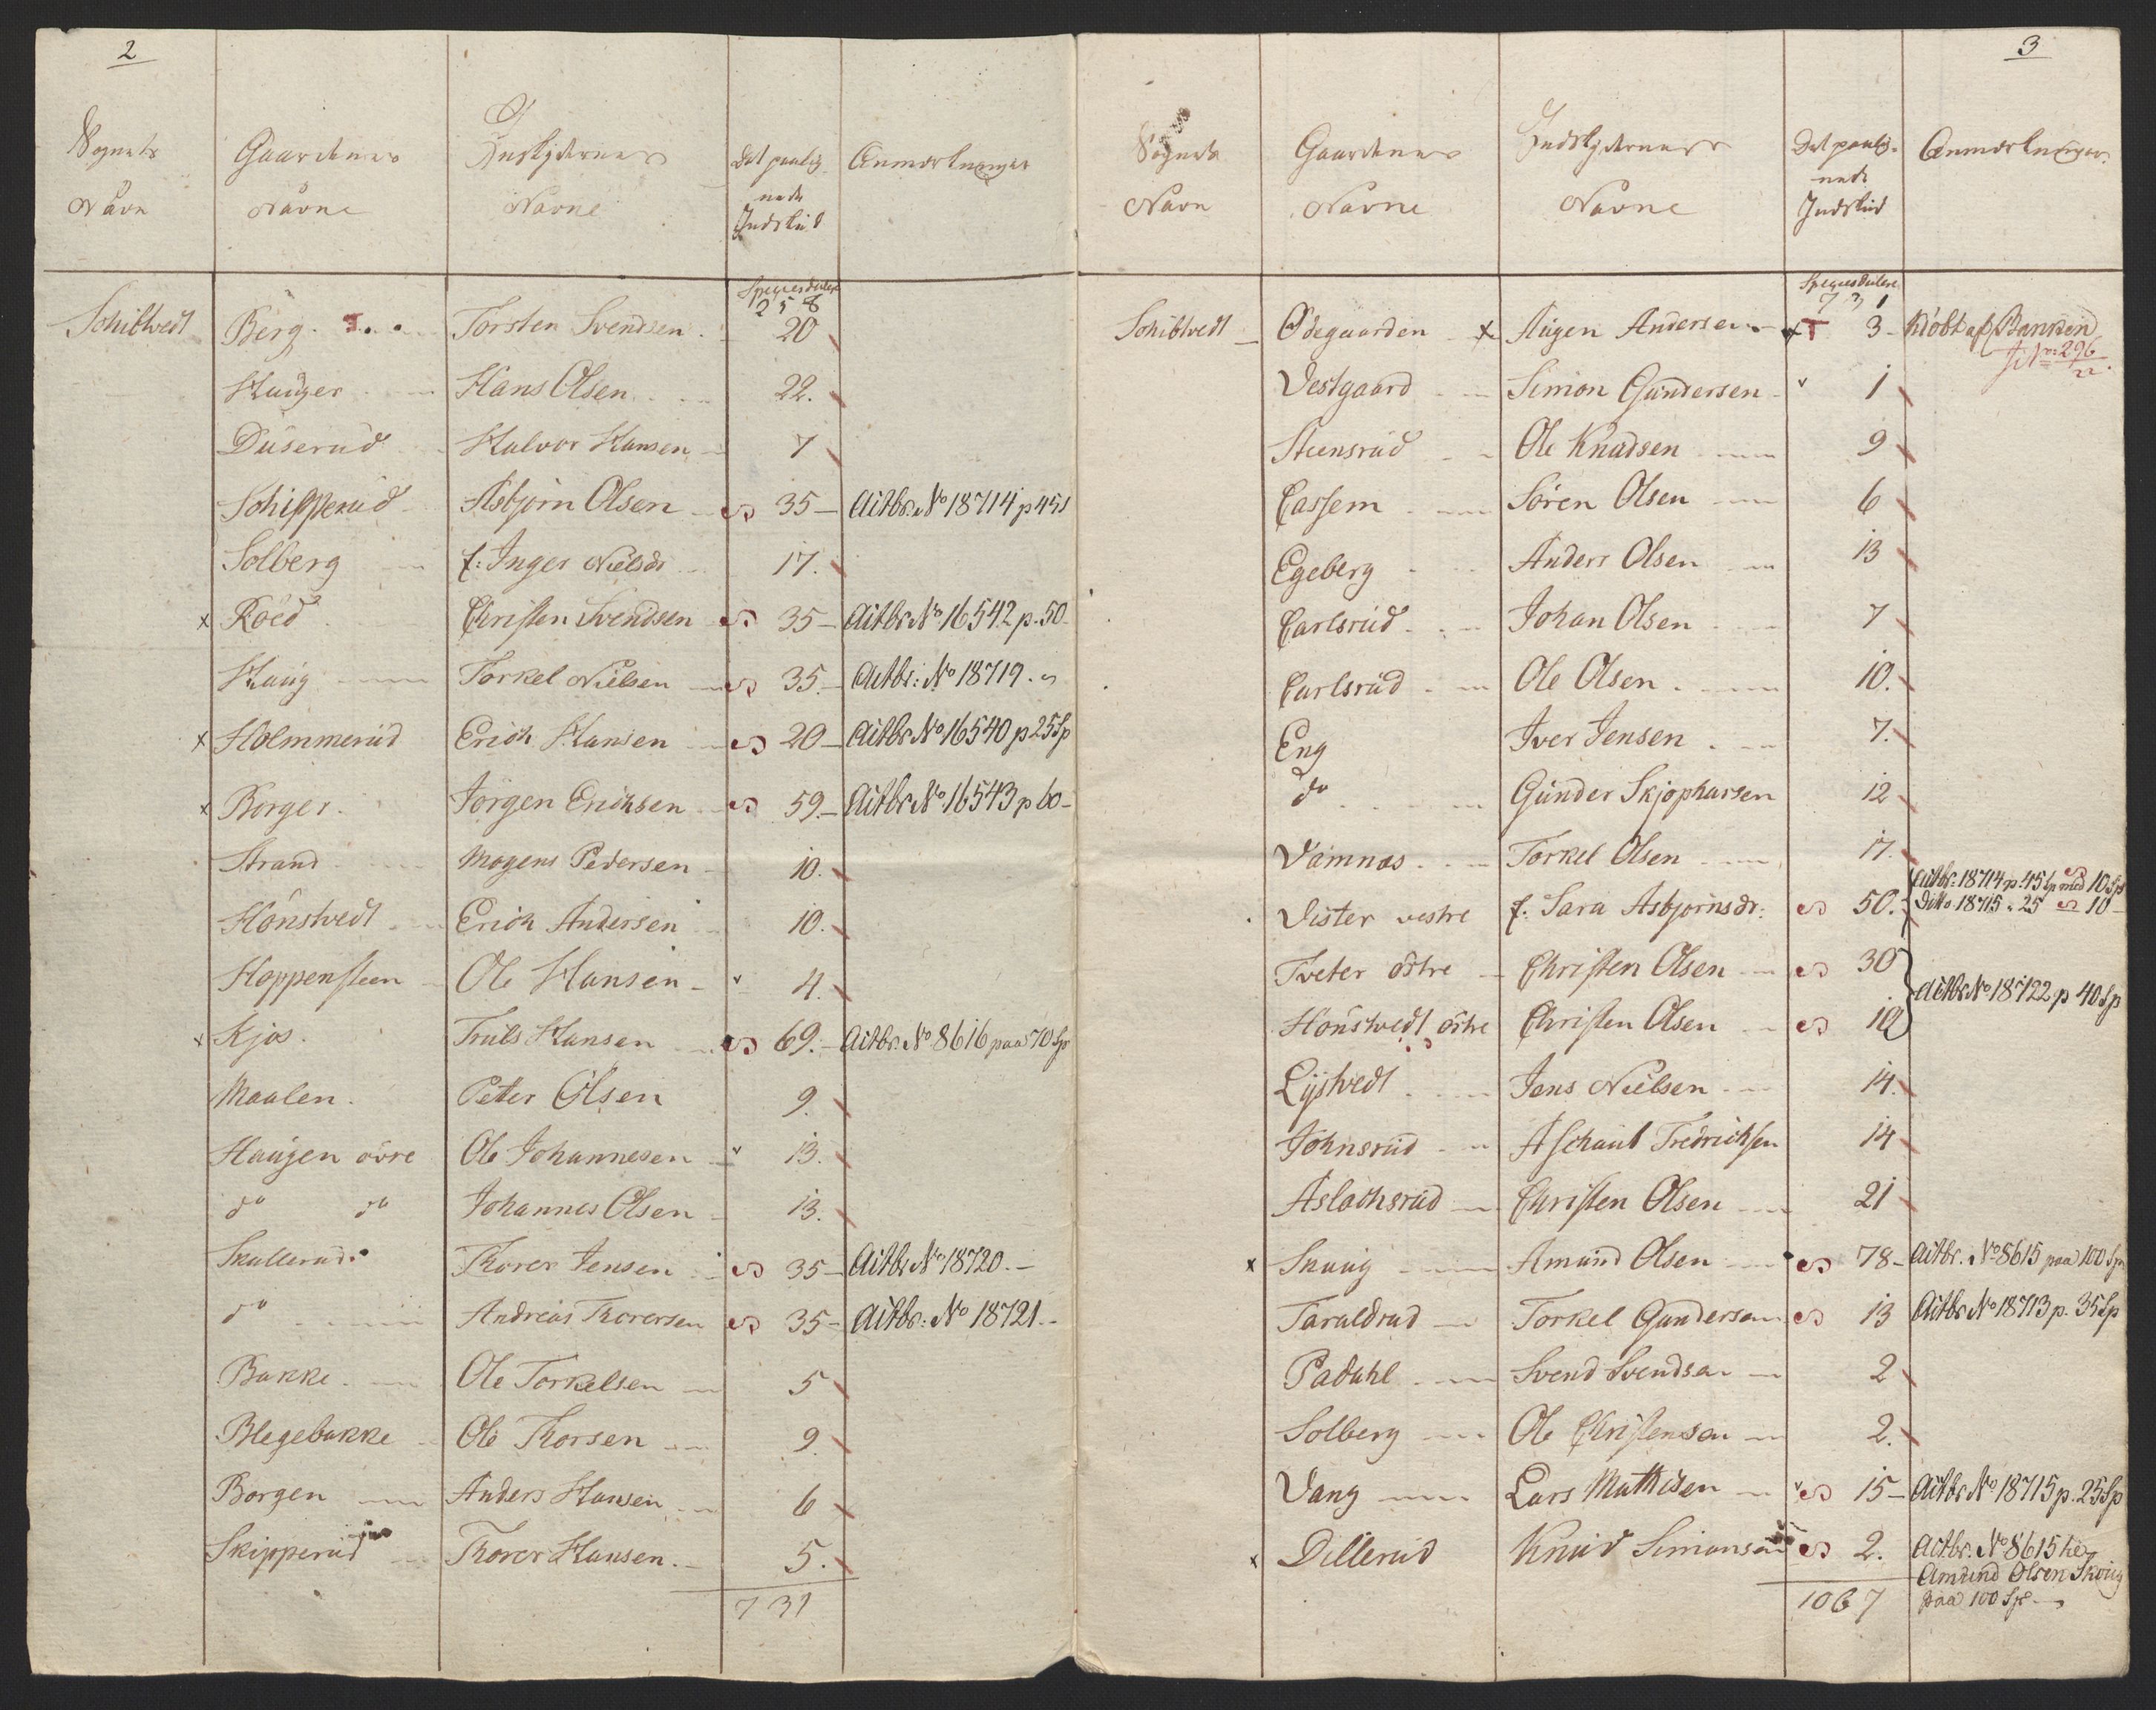 2
Sognets Navn | Gaardenes Navne | Indskydernes Navne | Det paalignede Indskud | Anmerkninger
Speciesdaler
258
Schibtvedt | Berg | Torsten Svendsen | 20
Hauger | Hans Olsen | 22.
Duserud | Halvor Hansen | 7
Schipperud | Asbjörn Olsen | 35 | Actbr. No 18714 p 45 s
Solberg | f: Inger Nielsdr | 17.
x Röed | Christen Svendsen | 35 | Actbr No 16542 p. 50
Haug | Torkel Nielsen | 35. | Actbr: No 18719.
x Holmmerud | Erich Hansen | 20 | Actbr No 16540 p 25 Sp
x Borger | Jörgen Erichsen | 59. | Actbr No 16543 p 60
Strand | Mogens Pedersen | 10.
Hönstvedt | Erich Andersen | 10.
Hoppensteen | Ole Hansen | v 4.
x Kjos | Truls Hansen | 69. | Actbr. No 8616 paa 70 Sp
Maalen | Peter Olsen | 9.
Haugen övre | Ole Johannesen | v 13.
do do | Johannes Olsen | 13.
Skullerud | Thorer Jensen | 35 | Actbr No 18720.
do | Andreas Thorersen | 35 | Actbr: No 18721.
Bakke | Ole Torkelsen | 5
Blegebakke | Ole Thorsen | 9.
Borgen | Anders Hansen | 6
Skipperud | Thorer Hansen. | 5.
731
3
Sognets Navn | Gaardenes Navne | Indskydernes Navne | Det paalignede Indskud | Anmerkninger.
Speciesdaler
731
Schibtvedt | Ödegaarden | x Aagen Andersen | x T 3 | Kiöbt af Banken
No 296
Vestgaard | Simon Gundersen | v 1
Steensrud | Ole Knudsen | 9
Cassem | Sören Olsen | 6
Egeberg | Anders Olsen | 13
Carlsrud | Johan Olsen | 7
Carlsrud | Ole Olsen | 10.
Eng | Iver Jensen | 7.
do | Gunder Skjopharsen | 12
Vamnas | Torkel Olsen | 17.
Vister vestre | f: Sara Asbjørnsdr: | 50. | Actbr: 18714 p. 45 Sp med 10 Sp
Ditto 18715 " 25 10
Tveter östre | Christen Olsen | 30
Actbr No 18722 p 40 Sp
Hönstvedt östre | Christen Olsen | 10
Lystvedt | Jens Nielsen | 14.
Johnsrud | Aschaut Fredrichsen | 14
Aslachsrud | Christen Olsen | 21
x Skuug | Amund Olsen | 78 | Actbr. No 8615 paa 100 Sp
Taraldrud | Torkel Gundersen | 13 | Actbr No 18713 p. 35 Sp
Padahl | Svend Svendsen | 2
Solberg | Ole Christensen | 2.
Vang | Lars Mathisen | v 15 | Actbr No 18715 p. 25 Sp
x Dillerud | Knud Simonsen | 2. | Actbr. No 8615 til
Amund Olsen Skoug
paa 100 Sp
1067